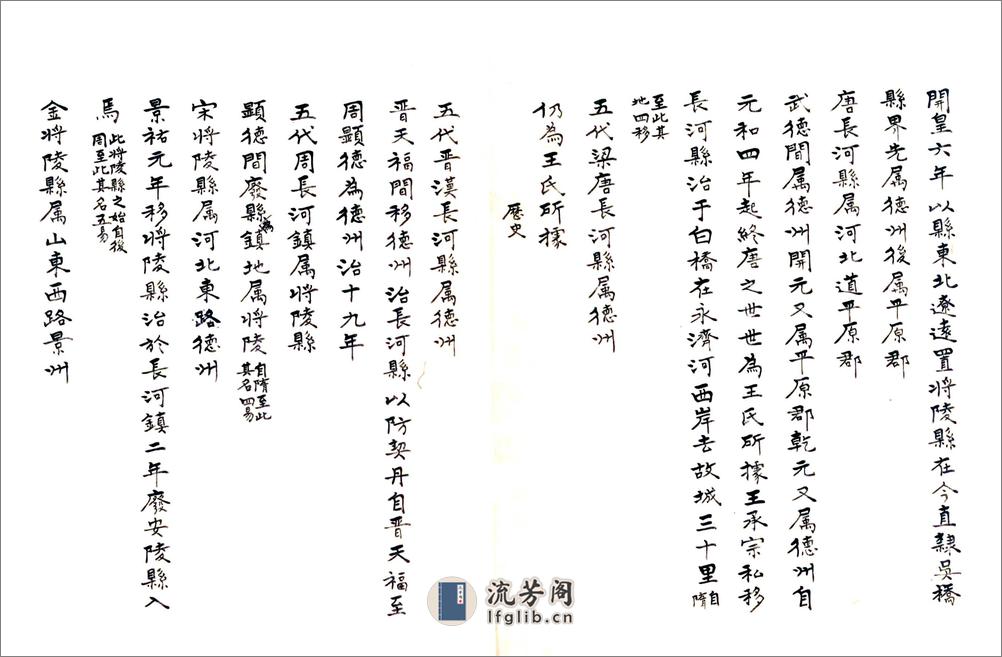 開皇六年以縣東北遼遠置将陵縣在今直隸吳橋
縣界先属德洲後属平原郡
唐長河縣属河北道平原郡
武德間属德洲開元又属平原郡乾元又属德洲自
元和四年起終唐之世世為王氏所據王承宗私移
長河縣治于白橋在永濟河西岸去故城三十里自隋
至此其地四移
五代梁唐長河縣属德洲
仍為王氏所據
歷史
五代晋漢長河縣属德洲
晋天福間移德洲治長河縣以防契丹自晋天福至
周顕德為德洲治十九年
五代周長河鎮属将陵縣
顕德間廢縣為鎮地属将陵自隋至此其名四易
宋将陵縣属河北東路德洲
景祐元年移将陵縣治於長河鎮二年廢安陵縣入
焉此将陵縣之始自後周至此其名五易
金将陵縣属山東西路景洲
流芳阁
lfglib.cn